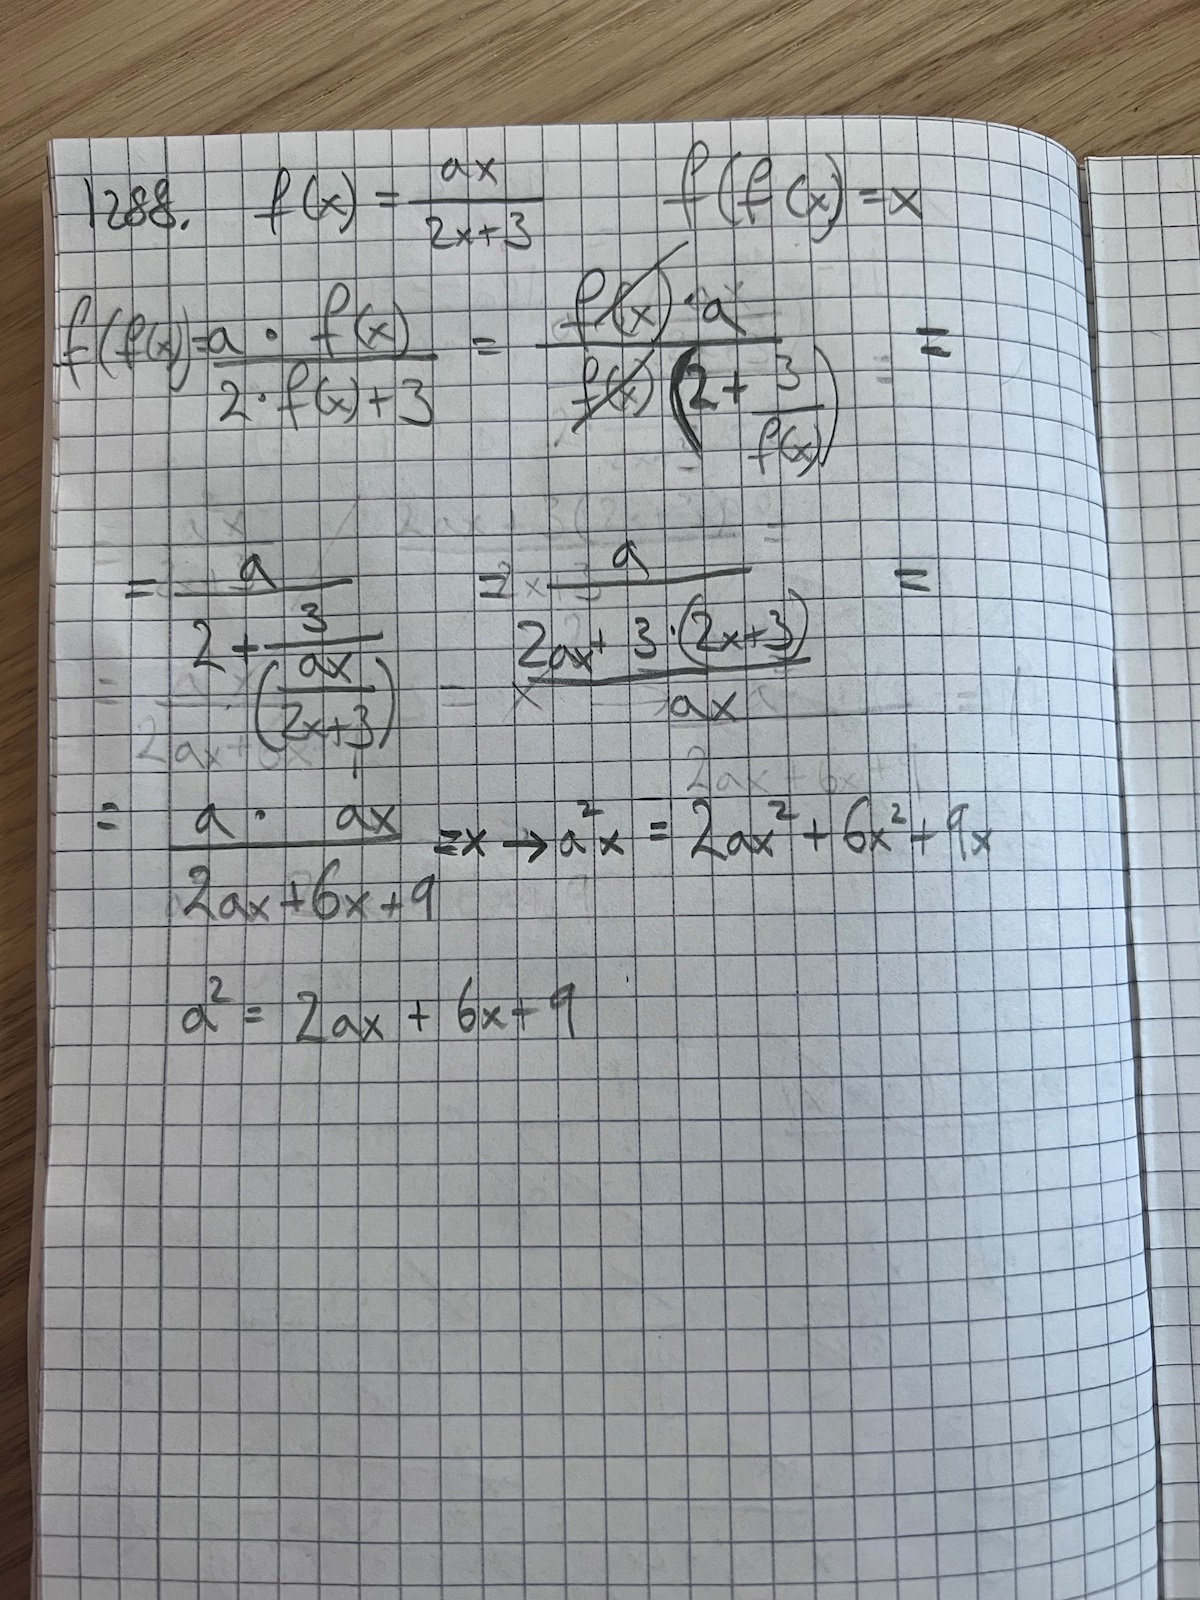 1288. f(x) = ax/(2x+3) f(f(x) = x
f(f(x) = (a · f(x))/(2 · f(x) + 3) = (f(x) · a)/(f(x) (2 + 3/f(x))) =
= a/(2 + 3/(ax/(2x+3))) = a/((2ax + 3·(2x+3))/ax) =
= (a · ax)/(2ax+6x+9) = x → a²x = 2ax² + 6x² + 9x
a² = 2ax + 6x + 9